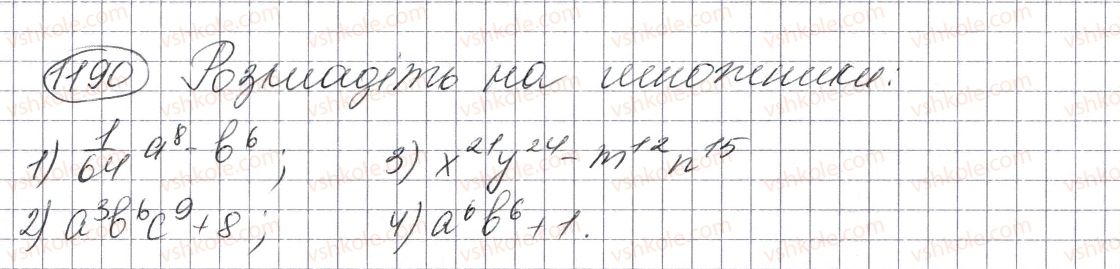 1190 Розкладіть на множники:
1) 1/64 a⁸ - b⁶; 3) x²¹y²⁴ - m¹²n¹⁵
2) a³b⁶c⁹ + 8; 4) a⁶b⁶ + 1.